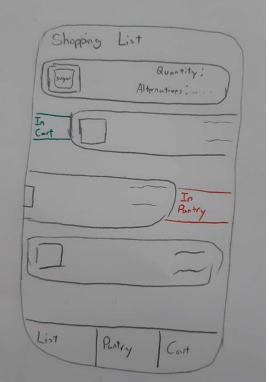 Shopping List
sugar
Quantity:
Alternatives: ....
In
Cart
In
Pantry
List Pantry Cart